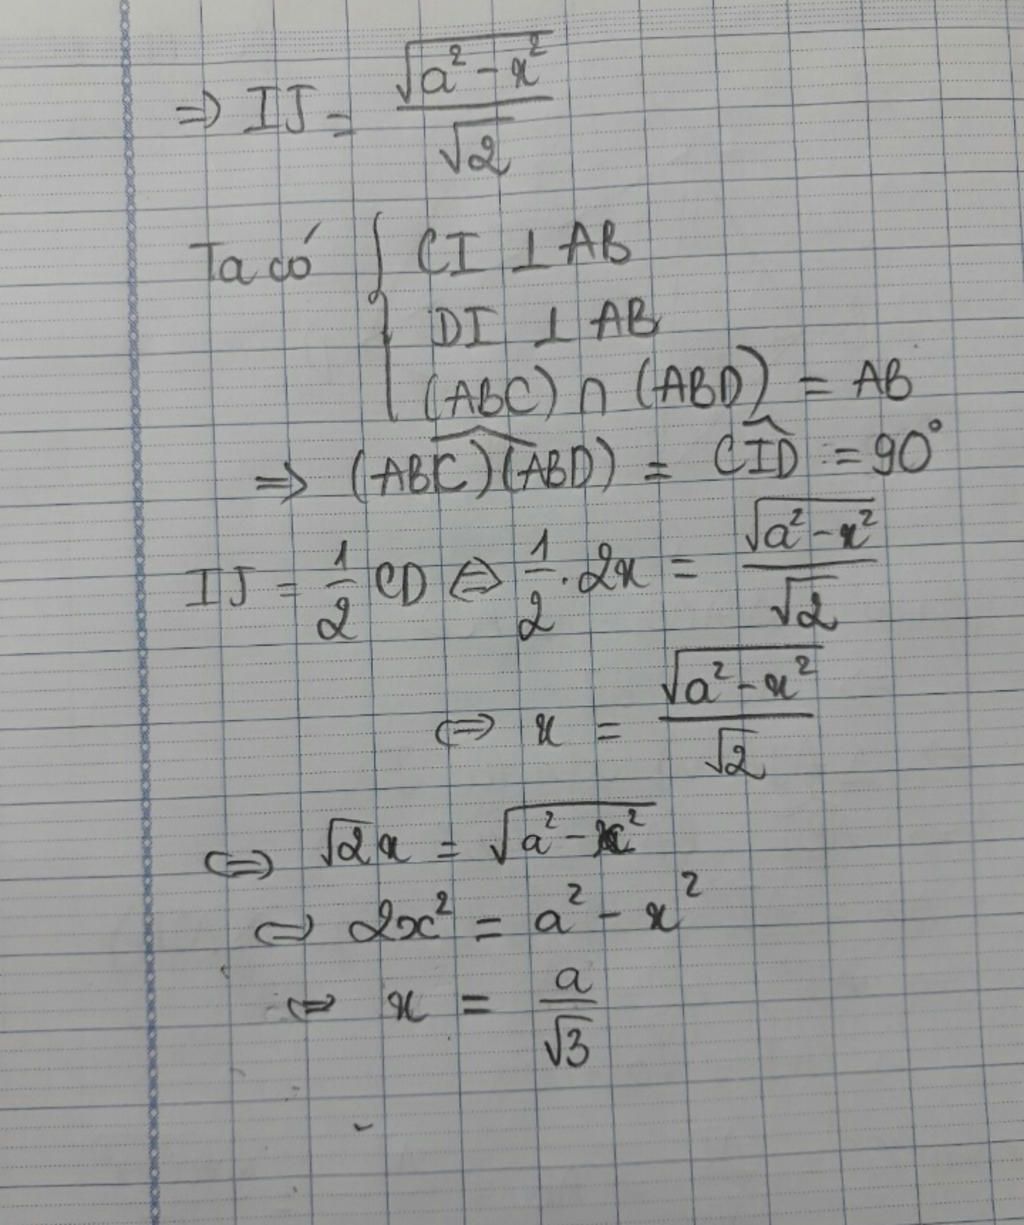 => IJ = √(a² - x²) / √2
Ta có { CI ⊥ AB
DI ⊥ AB
(ABC) ∩ (ABD) = AB
=> (ABC)(ABD) = CID = 90°
IJ = 1/2 CD ⇔ 1/2 . 2x = √(a² - x²) / √2
⇔ x = √(a² - x²) / √2
⇔ √2 x = √(a² - x²)
⇔ 2x² = a² - x²
⇔ x = a / √3